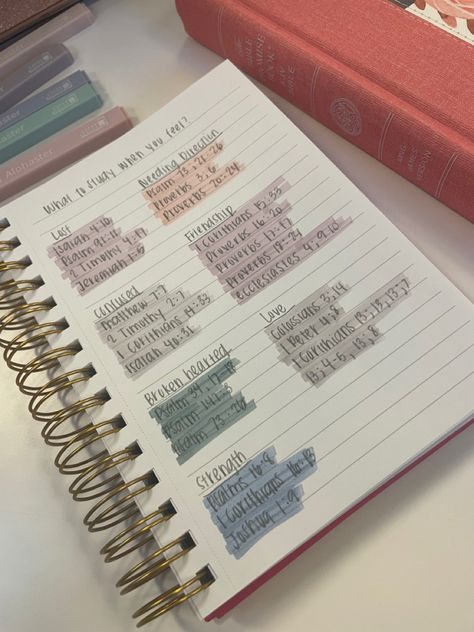 What to study when you feel?
Lost
Isaiah 41:10
Psalm 91:11
2 Timothy 4:17
Jeremiah 1:5
Needing Direction
Psalm 73, 21-26
Proverbs 3, 6
Proverbs 20:24
Friendship
1 Corinthians 15:33
Proverbs 16:28
Proverbs 17:17
Proverbs 18:24
ecclesiastes 4, 9-10
Confused
matthew 7:7
2 Timothy 2:7
1 Corinthians 14:33
Isaiah 40:31
Love
Colossians 3:14
1 Peter 4:8
1 Corinthians 13:13, 13:7
13:4-5, 13:8
Broken hearted
Psalm 34, 17-18
Psalm 147:3
Psalm 73:26
Strength
Psalms 16:8
1 Corinthians 16:13
Joshua 1:9
The
Bible
Promise
Book
KJV
Alabaster
Alabaster